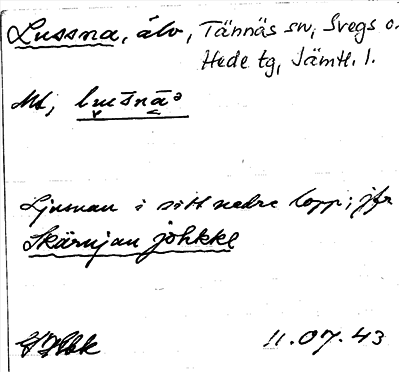 Lussna, älv, Tännäs sn, Svegs o.
Hede tg, Jämtl. l.
Ljusnan i sitt nedre lopp; jfr
Skärujan johkke
11.07.43